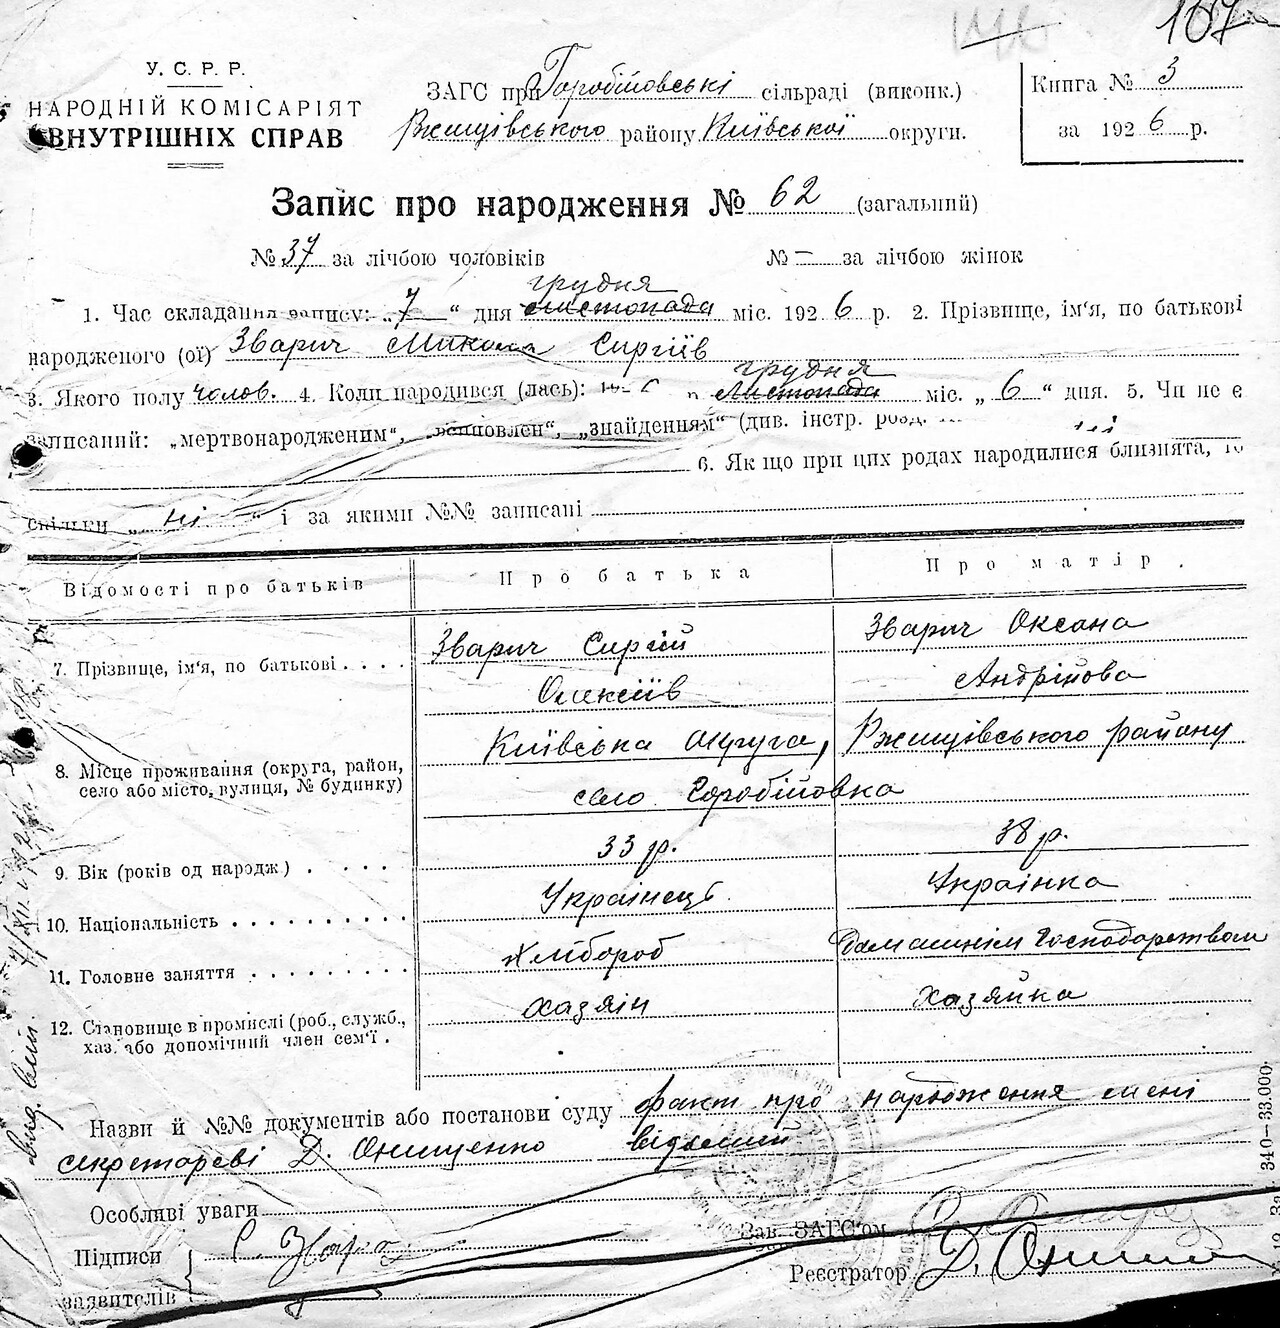 167
У. С. Р. Р.
НАРОДНІЙ КОМІСАРІЯТ
ВНУТРІШНІХ СПРАВ
ЗАГС при Горобіївські сільраді (виконк.)
Ржищівського району Київської округи.
Книга № 3
за 1926 р.
Запис про народження № 62 (загальний)
№ 37 за лічбою чоловіків
№ – за лічбою жінок
грудня
1. Час складання запису: „7“ дня листопада міс. 1926 р. 2. Прізвище, ім'я, по батькові
народженого (ої) Зварич Микола Сиргіїв
грудня
3. Якого полу чолов. 4. Коли народився (лась): листопада міс. „6“ дня. 5. Чи не є
записаний: „мертвонародженим“, „знайденням“ (див. інстр. розд.
ні
6. Як що при цих родах народилися близнята, то
скільки „ні“ і за якими №№ записані
Відомості про батьків
Про батька
Про матір
7. Прізвище, ім'я, по батькові . . . .
Зварич Сиргій
Олексіїв
Зварич Оксана
Андрійова
8. Місце проживання (округа, район,
село або місто, вулиця, № будинку)
Київська округа, Ржищівського району
село Горобіївка
9. Вік (років од народж) . . . .
33 р.
38 р.
10. Національність . . . . . . . . .
Українець
Українка
11. Головне заняття . . . . . . . .
Хлібороб
Домашнім господарством
12. Становище в промислі (роб., служб.,
хаз. або допомічний член сем'ї .
хазяін
хазяйка
Назви й №№ документів або постанови суду факт про народження мені
секретареві Д. Онищенко відомий
Особливі уваги
Підписи
заявителів
С. Звар
Зав. ЗАГС'ом
Реєстратор Д. Онищ
340—33.000.